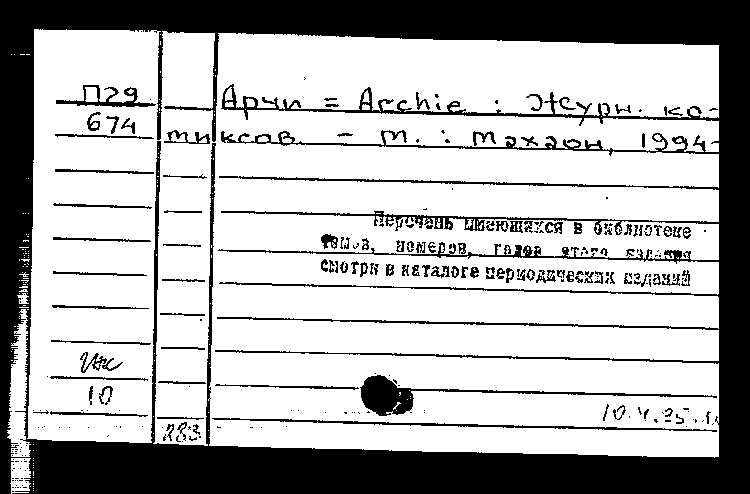 П29
674
Арчи = Archie : Журн. ко-
миксов. - М. : Махаон, 1994-
Перечень имеющихся в библиотеке
томов, номеров, годов этого издания
смотри в каталоге периодических изданий
10
283